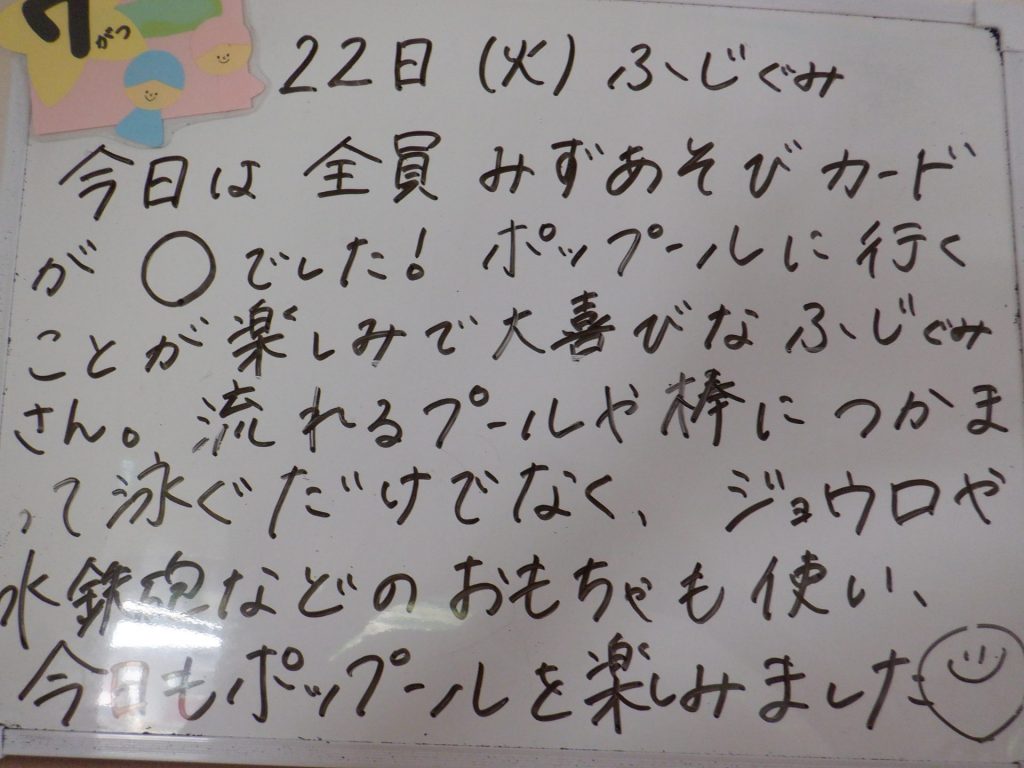 7がつ
22日(火)ふじぐみ
今日は 全員 みずあそびカード
が ○でした! ポップールに行く
ことが楽しみで大喜びなふじぐみ
さん。流れるプールや棒につかま
って泳ぐだけでなく、ジョウロや
水鉄砲などのおもちゃも使い、
今日もポップールを楽しみました